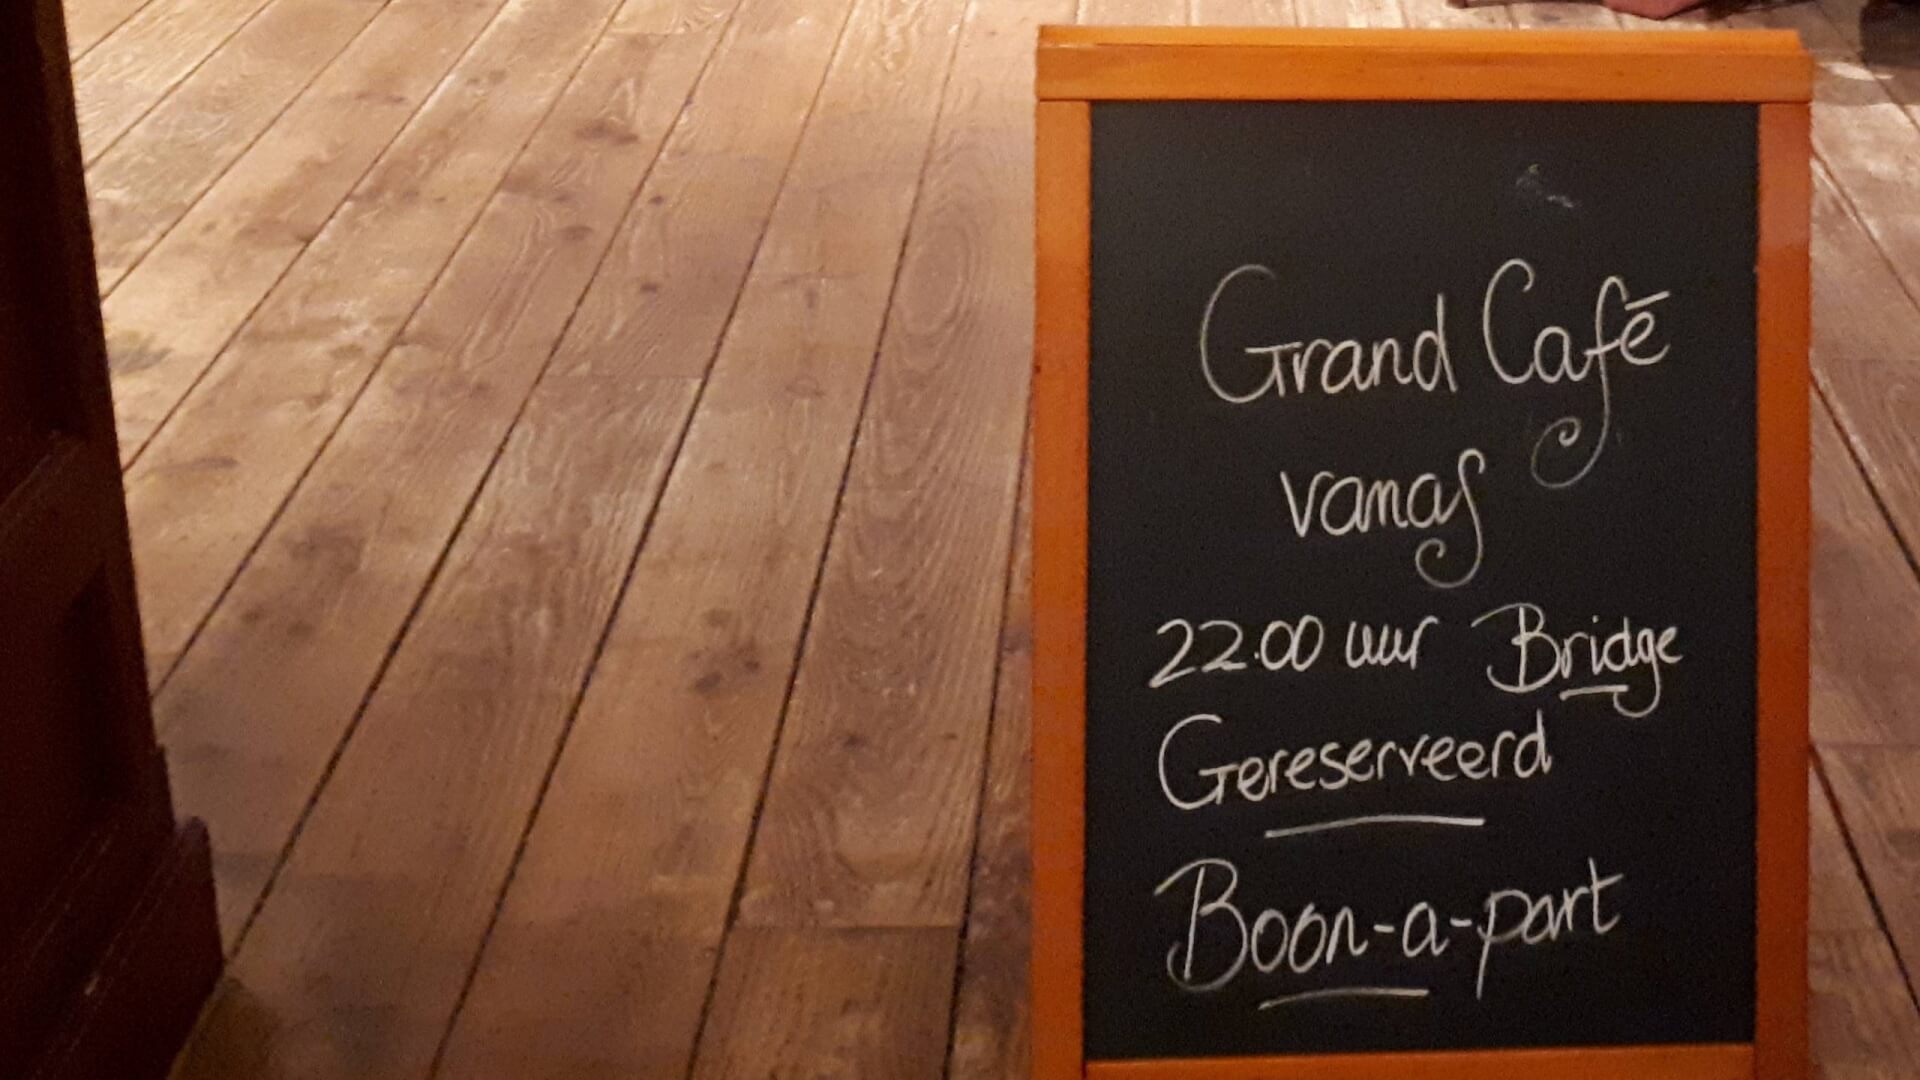 Grand Café
vanaf
22.00 uur Bridge
Gereserveerd
Boon-a-part